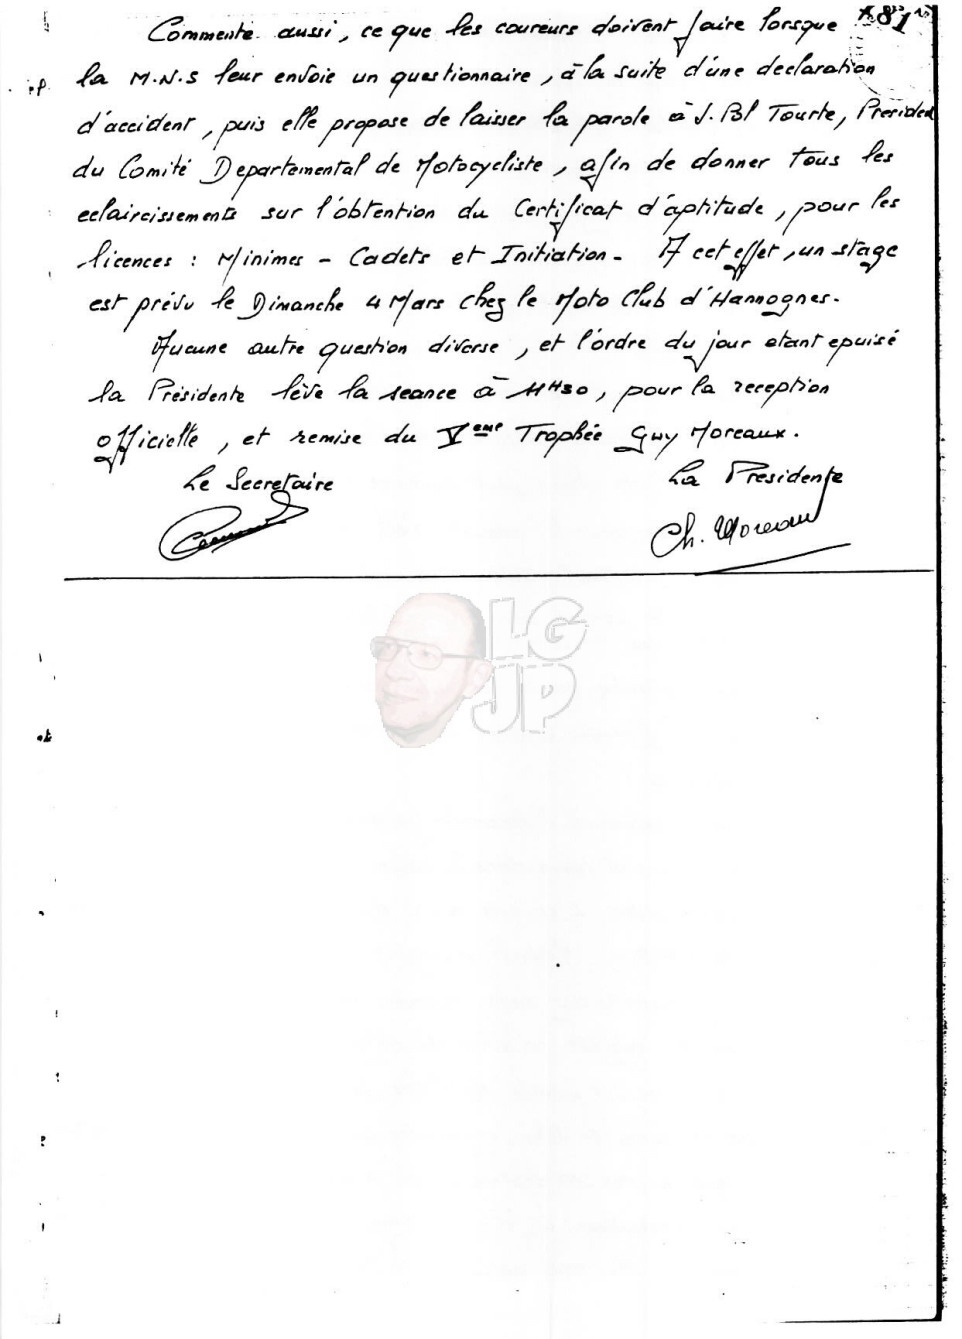 181
Commente aussi, ce que les coureurs doivent faire lorsque
la M.N.S leur envoie un questionnaire, à la suite d'une declaration
d'accident, puis elle propose de laisser la parole à J. Bl Tourte, Président
du Comité Departemental de Motocycliste, afin de donner tous les
eclaircissements sur l'obtention du Certificat d'aptitude, pour les
licences : Minimes - Cadets et Initiation - A cet effet, un stage
est prévu le Dimanche 4 Mars chez le Moto Club d'Hannognes.
Aucune autre question diverse, et l'ordre du jour etant epuisé
la Présidente lève la seance à 11H30, pour la reception
officielle, et remise du Vème Trophée Guy Moreaux.
Le Secretaire
La Presidente
Ch. Moreaux
LG
JP